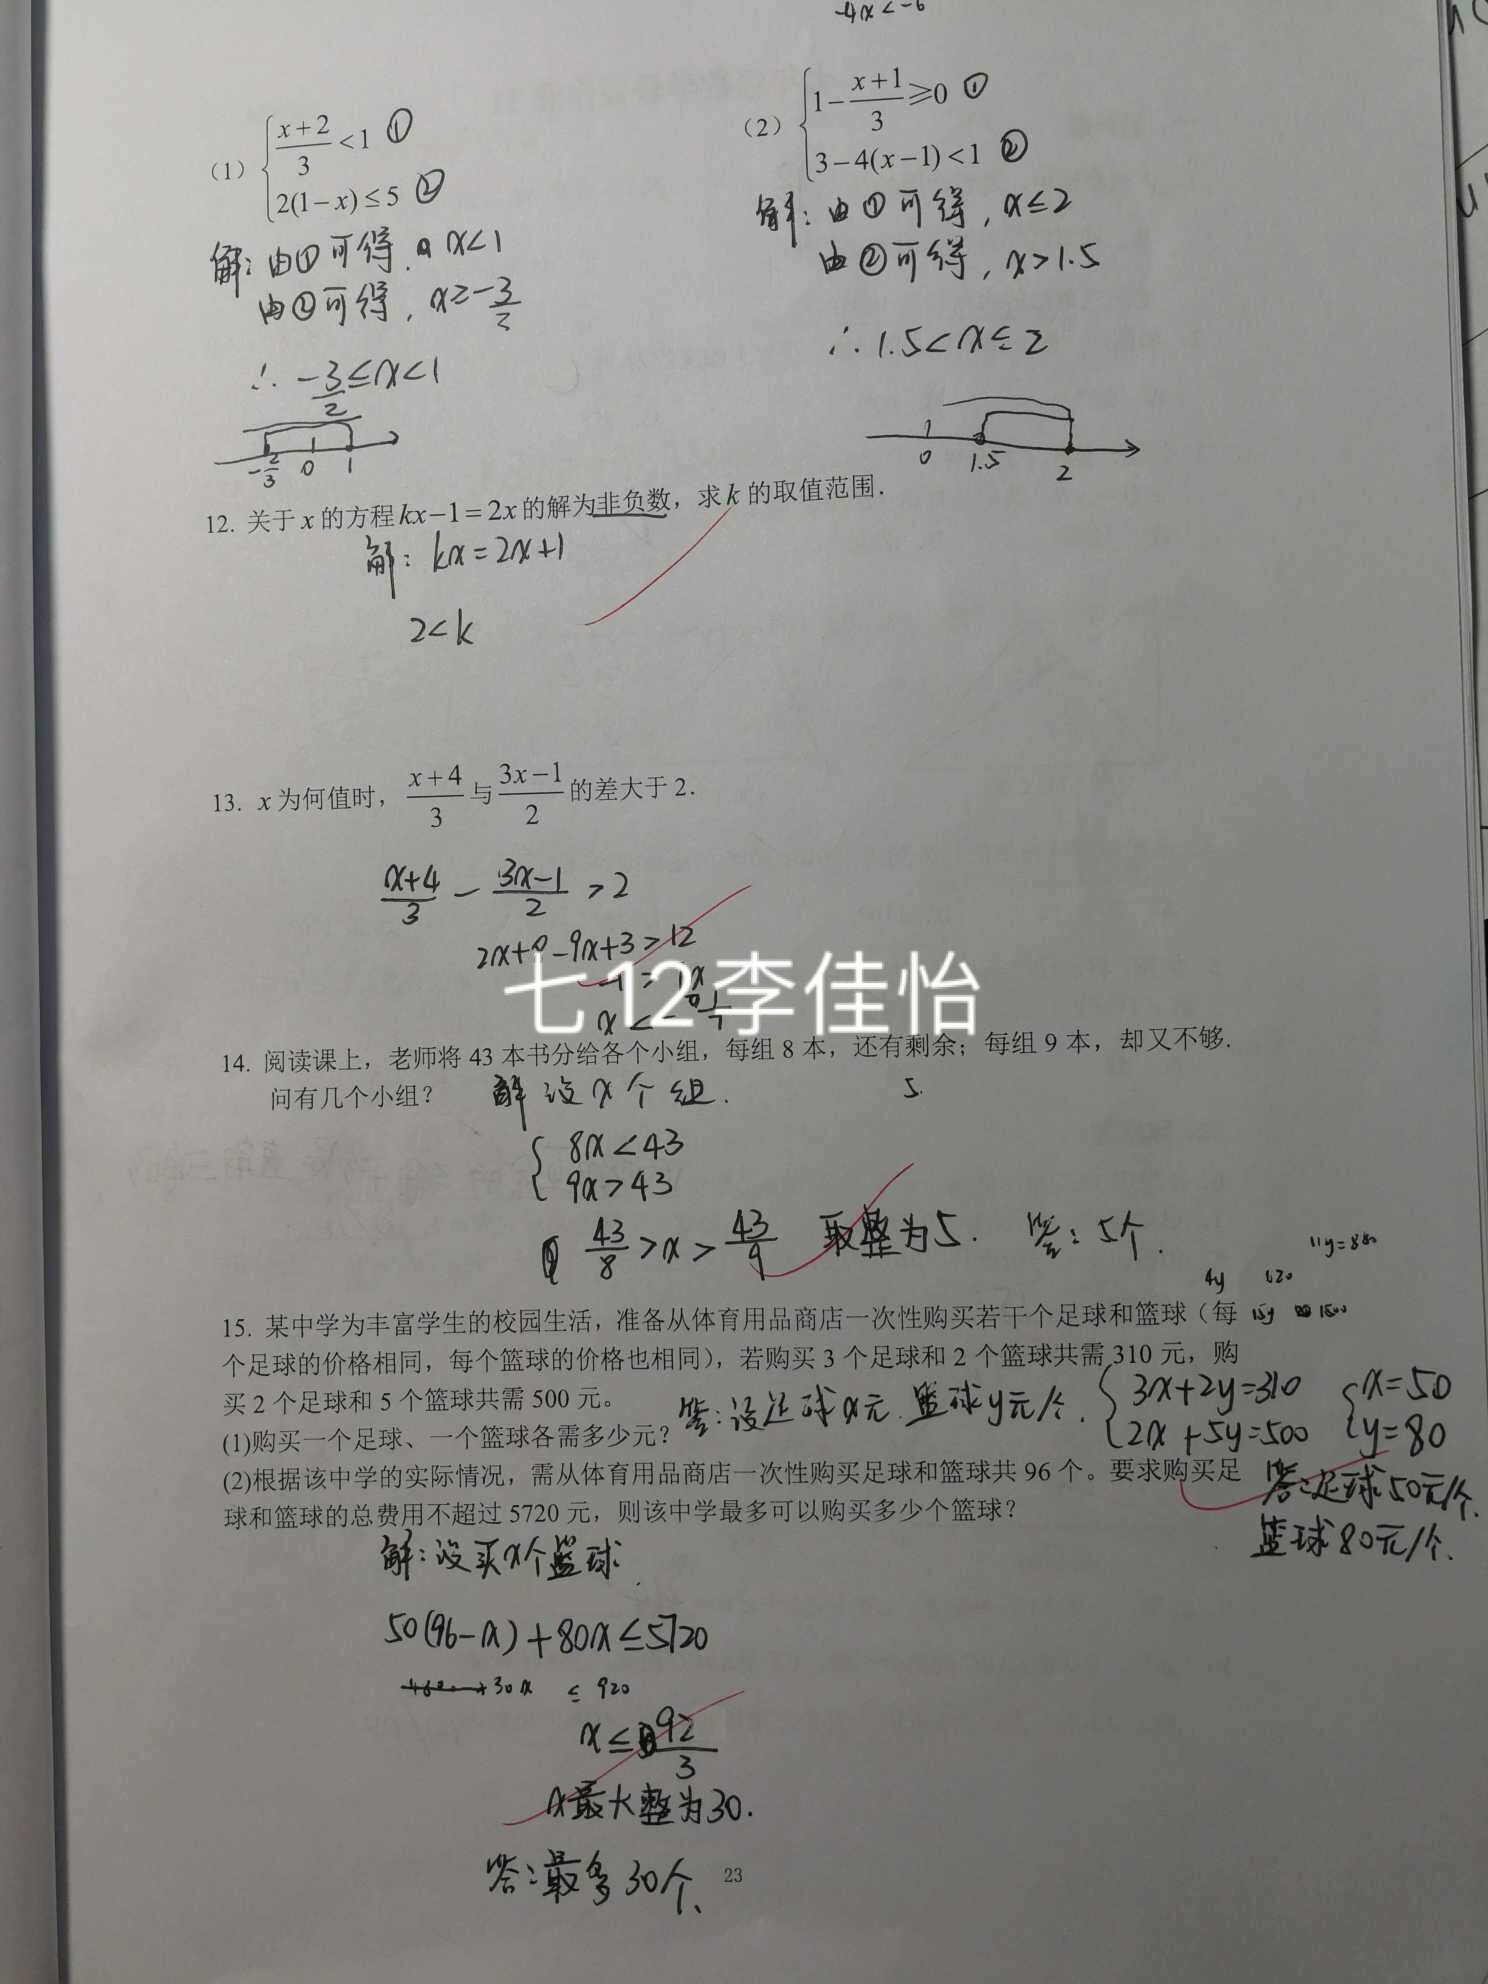 -4x<-6
(1) { (x+2)/3 <1 ①
2(1-x)≤5 ②
解: 由①可得, x<1
由②可得, x≥-3/2
∴ -3/2≤x<1
-2/3 0 1
(2) { 1-(x+1)/3≥0 ①
3-4(x-1)<1 ②
解: 由①可得, x≤2
由②可得, x>1.5
∴ 1.5<x≤2
0 1.5 2
12. 关于 x 的方程 kx-1=2x 的解为非负数，求 k 的取值范围.
解: kx=2x+1
2<k
13. x 为何值时， (x+4)/3 与 (3x-1)/2 的差大于 2.
(x+4)/3 - (3x-1)/2 >2
2x+8-9x+3>12
七12李佳怡
14. 阅读课上，老师将 43 本书分给各个小组，每组 8 本，还有剩余；每组 9 本，却又不够.
问有几个小组？ 解 设x个组.
5.
{ 8x<43
9x>43
43/8 >x> 43/9 取整为5. 答: 5个.
11y=880
4y 620
15y 1500
15. 某中学为丰富学生的校园生活，准备从体育用品商店一次性购买若干个足球和篮球（每
个足球的价格相同，每个篮球的价格也相同），若购买 3 个足球和 2 个篮球共需 310 元，购
买 2 个足球和 5 个篮球共需 500 元。
答: 设足球x元, 篮球y元/个. { 3x+2y=310 { x=50
2x+5y=500 y=80
(1)购买一个足球、一个篮球各需多少元？
(2)根据该中学的实际情况，需从体育用品商店一次性购买足球和篮球共 96 个。要求购买足
球和篮球的总费用不超过 5720 元，则该中学最多可以购买多少个篮球？
答: 足球50元/个.
篮球80元/个.
解: 设买x个篮球.
50(96-x)+80x≤5720
30x ≤ 920
x≤ 92/3
x最大整为30.
答: 最多30个.
23